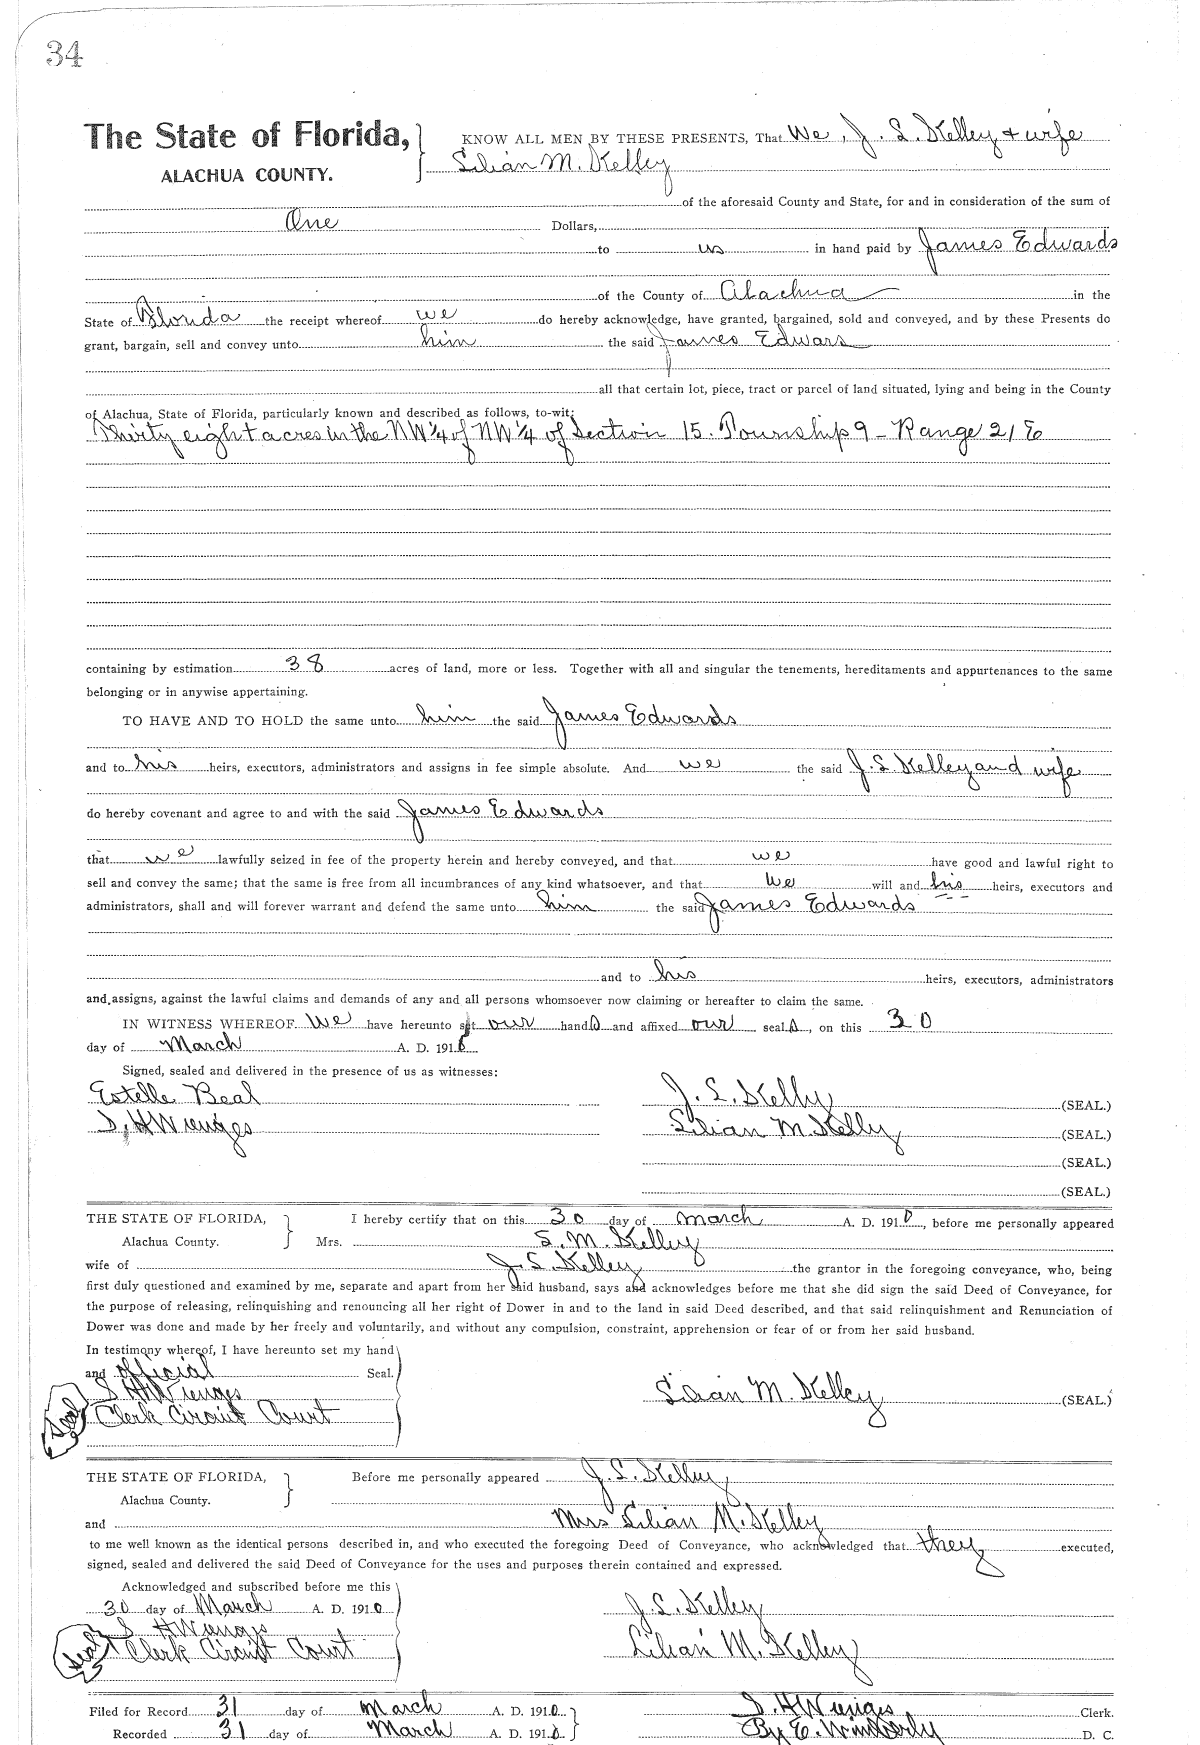 34
The State of Florida, KNOW ALL MEN BY THESE PRESENTS, That We, J. L. Kelley & wife
ALACHUA COUNTY. Lilian M. Kelley
of the aforesaid County and State, for and in consideration of the sum of
One Dollars,
to us in hand paid by James Edwards
of the County of Alachua in the
State of Florida the receipt whereof we do hereby acknowledge, have granted, bargained, sold and conveyed, and by these Presents do
grant, bargain, sell and convey unto him the said James Edwars
all that certain lot, piece, tract or parcel of land situated, lying and being in the County
of Alachua, State of Florida, particularly known and described as follows, to-wit:
Thirty eight acres in the NW ¼ of NW ¼ of Section 15. Township 9 - Range 21 E
containing by estimation 38 acres of land, more or less. Together with all and singular the tenements, hereditaments and appurtenances to the same
belonging or in anywise appertaining.
TO HAVE AND TO HOLD the same unto him the said James Edwards
and to his heirs, executors, administrators and assigns in fee simple absolute. And we the said J. L. Kelley and wife
do hereby covenant and agree to and with the said James Edwards
that we lawfully seized in fee of the property herein and hereby conveyed, and that we have good and lawful right to
sell and convey the same; that the same is free from all incumbrances of any kind whatsoever, and that we will and his heirs, executors and
administrators, shall and will forever warrant and defend the same unto him the said James Edwards
and to his heirs, executors, administrators
and assigns, against the lawful claims and demands of any and all persons whomsoever now claiming or hereafter to claim the same.
IN WITNESS WHEREOF We have hereunto set our hands and affixed our seals, on this 30
day of March A. D. 1910
Signed, sealed and delivered in the presence of us as witnesses:
Estelle Beal J. L. Kelly (SEAL.)
S. H Wienges Lilian M. Kelly (SEAL.)
(SEAL.)
(SEAL.)
THE STATE OF FLORIDA, I hereby certify that on this 30 day of March A. D. 1910, before me personally appeared
Alachua County. Mrs. L. M. Kelley
wife of J. L. Kelley the grantor in the foregoing conveyance, who, being
first duly questioned and examined by me, separate and apart from her said husband, says and acknowledges before me that she did sign the said Deed of Conveyance, for
the purpose of releasing, relinquishing and renouncing all her right of Dower in and to the land in said Deed described, and that said relinquishment and Renunciation of
Dower was done and made by her freely and voluntarily, and without any compulsion, constraint, apprehension or fear of or from her said husband.
In testimony whereof, I have hereunto set my hand
and official Seal.
S H Wienges Lilian M. Kelley (SEAL.)
Seal Clerk Circuit Court
THE STATE OF FLORIDA, Before me personally appeared J. L. Kelley
Alachua County.
and Mrs Lilian M. Kelley
to me well known as the identical persons described in, and who executed the foregoing Deed of Conveyance, who acknowledged that they executed,
signed, sealed and delivered the said Deed of Conveyance for the uses and purposes therein contained and expressed.
Acknowledged and subscribed before me this
30 day of March A. D. 1910 J. L. Kelley
S H Wienges
Seal Clerk Circuit Court Lilian M. Kelley
Filed for Record 31 day of March A. D. 1910 S. H Wienges Clerk.
Recorded 31 day of March A. D. 1910 By E. Wimberly D. C.